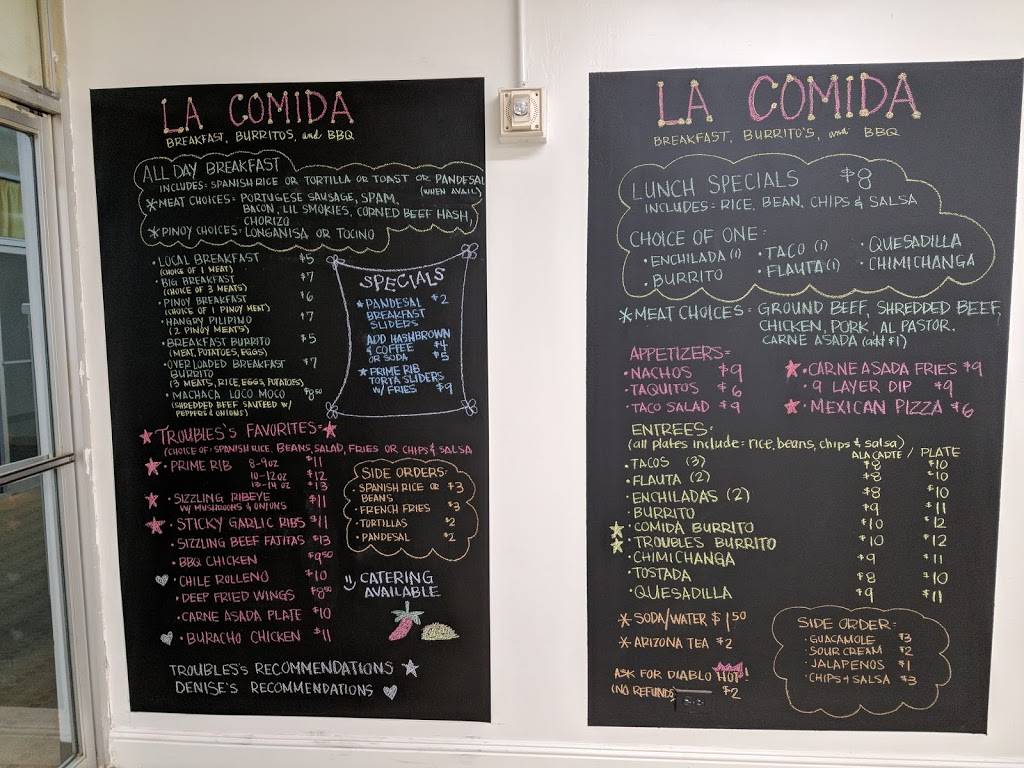 LA COMIDA
BREAKFAST, BURRITOS, and BBQ
ALL DAY BREAKFAST
INCLUDES: SPANISH RICE OR TORTILLA OR TOAST OR PANDESAL
(WHEN AVAIL)
*MEAT CHOICES: PORTUGESE SAUSAGE, SPAM,
BACON, LIL SMOKIES, CORNED BEEF HASH,
CHORIZO
*PINOY CHOICES: LONGANISA OR TOCINO
• LOCAL BREAKFAST $5
(CHOICE OF 1 MEAT)
• BIG BREAKFAST $7
(CHOICE OF 3 MEATS)
• PINOY BREAKFAST $6
(CHOICE OF 1 PINOY MEAT)
• HANGRY PILIPINO $7
(2 PINOY MEATS)
• BREAKFAST BURRITO $5
(MEAT, POTATOES, EGGS)
• OVERLOADED BREAKFAST $7
BURRITO
(3 MEATS, RICE, EGGS, POTATOES)
• MACHACA LOCO MOCO $8.50
(SHREDDED BEEF SAUTEED W/
PEPPERS & ONIONS)
SPECIALS
★ PANDESAL $2
BREAKFAST
SLIDERS
ADD HASHBROWN
& COFFEE $4
OR SODA $5
★ PRIME RIB
TORTA SLIDERS
W/ FRIES $9
★ TROUBLES'S FAVORITES: ★
(CHOICE OF: SPANISH RICE, BEANS, SALAD, FRIES OR CHIPS & SALSA
★ • PRIME RIB 8-9oz $11
10-12oz $12
13-14 oz $13
★ • SIZZLING RIBEYE $11
W/ MUSHROOMS & ONIONS
★ • STICKY GARLIC RIBS $11
• SIZZLING BEEF FAJITAS $13
• BBQ CHICKEN $9.50
♡ • CHILE ROLLENO $10
• DEEP FRIED WINGS $8.50
• CARNE ASADA PLATE $10
♡ • BURACHO CHICKEN $11
SIDE ORDERS:
• SPANISH RICE OR $3
BEANS
• FRENCH FRIES $3
• TORTILLAS $2
• PANDESAL $2
CATERING
AVAILABLE
TROUBLES'S RECOMMENDATIONS ★
DENISE'S RECOMMENDATIONS ♡
LA COMIDA
BREAKFAST, BURRITO'S, and BBQ
LUNCH SPECIALS $8
INCLUDES: RICE, BEAN, CHIPS & SALSA
CHOICE OF ONE:
• ENCHILADA (1) • TACO (1) • QUESADILLA
• BURRITO • FLAUTA (1) • CHIMICHANGA
*MEAT CHOICES: GROUND BEEF, SHREDDED BEEF,
CHICKEN, PORK, AL PASTOR,
CARNE ASADA (add $1)
APPETIZERS:
• NACHOS $9
• TAQUITOS $6
• TACO SALAD $9
★ • CARNE ASADA FRIES $9
• 9 LAYER DIP $9
★ • MEXICAN PIZZA $6
ENTREES:
(all plates include: rice, beans, chips & salsa)
ALA CARTE / PLATE
• TACOS (3) $8 $10
• FLAUTA (2) $8 $10
• ENCHILADAS (2) $8 $10
• BURRITO $9 $11
★ • COMIDA BURRITO $10 $12
★ • TROUBLES BURRITO $10 $12
• CHIMICHANGA $9 $11
• TOSTADA $8 $10
• QUESADILLA $9 $11
* SODA/WATER $1.50
* ARIZONA TEA $2
ASK FOR DIABLO HOT!
(NO REFUNDS) $2
SIDE ORDER:
• GUACAMOLE $3
• SOUR CREAM $2
• JALAPENOS $1
• CHIPS & SALSA $3